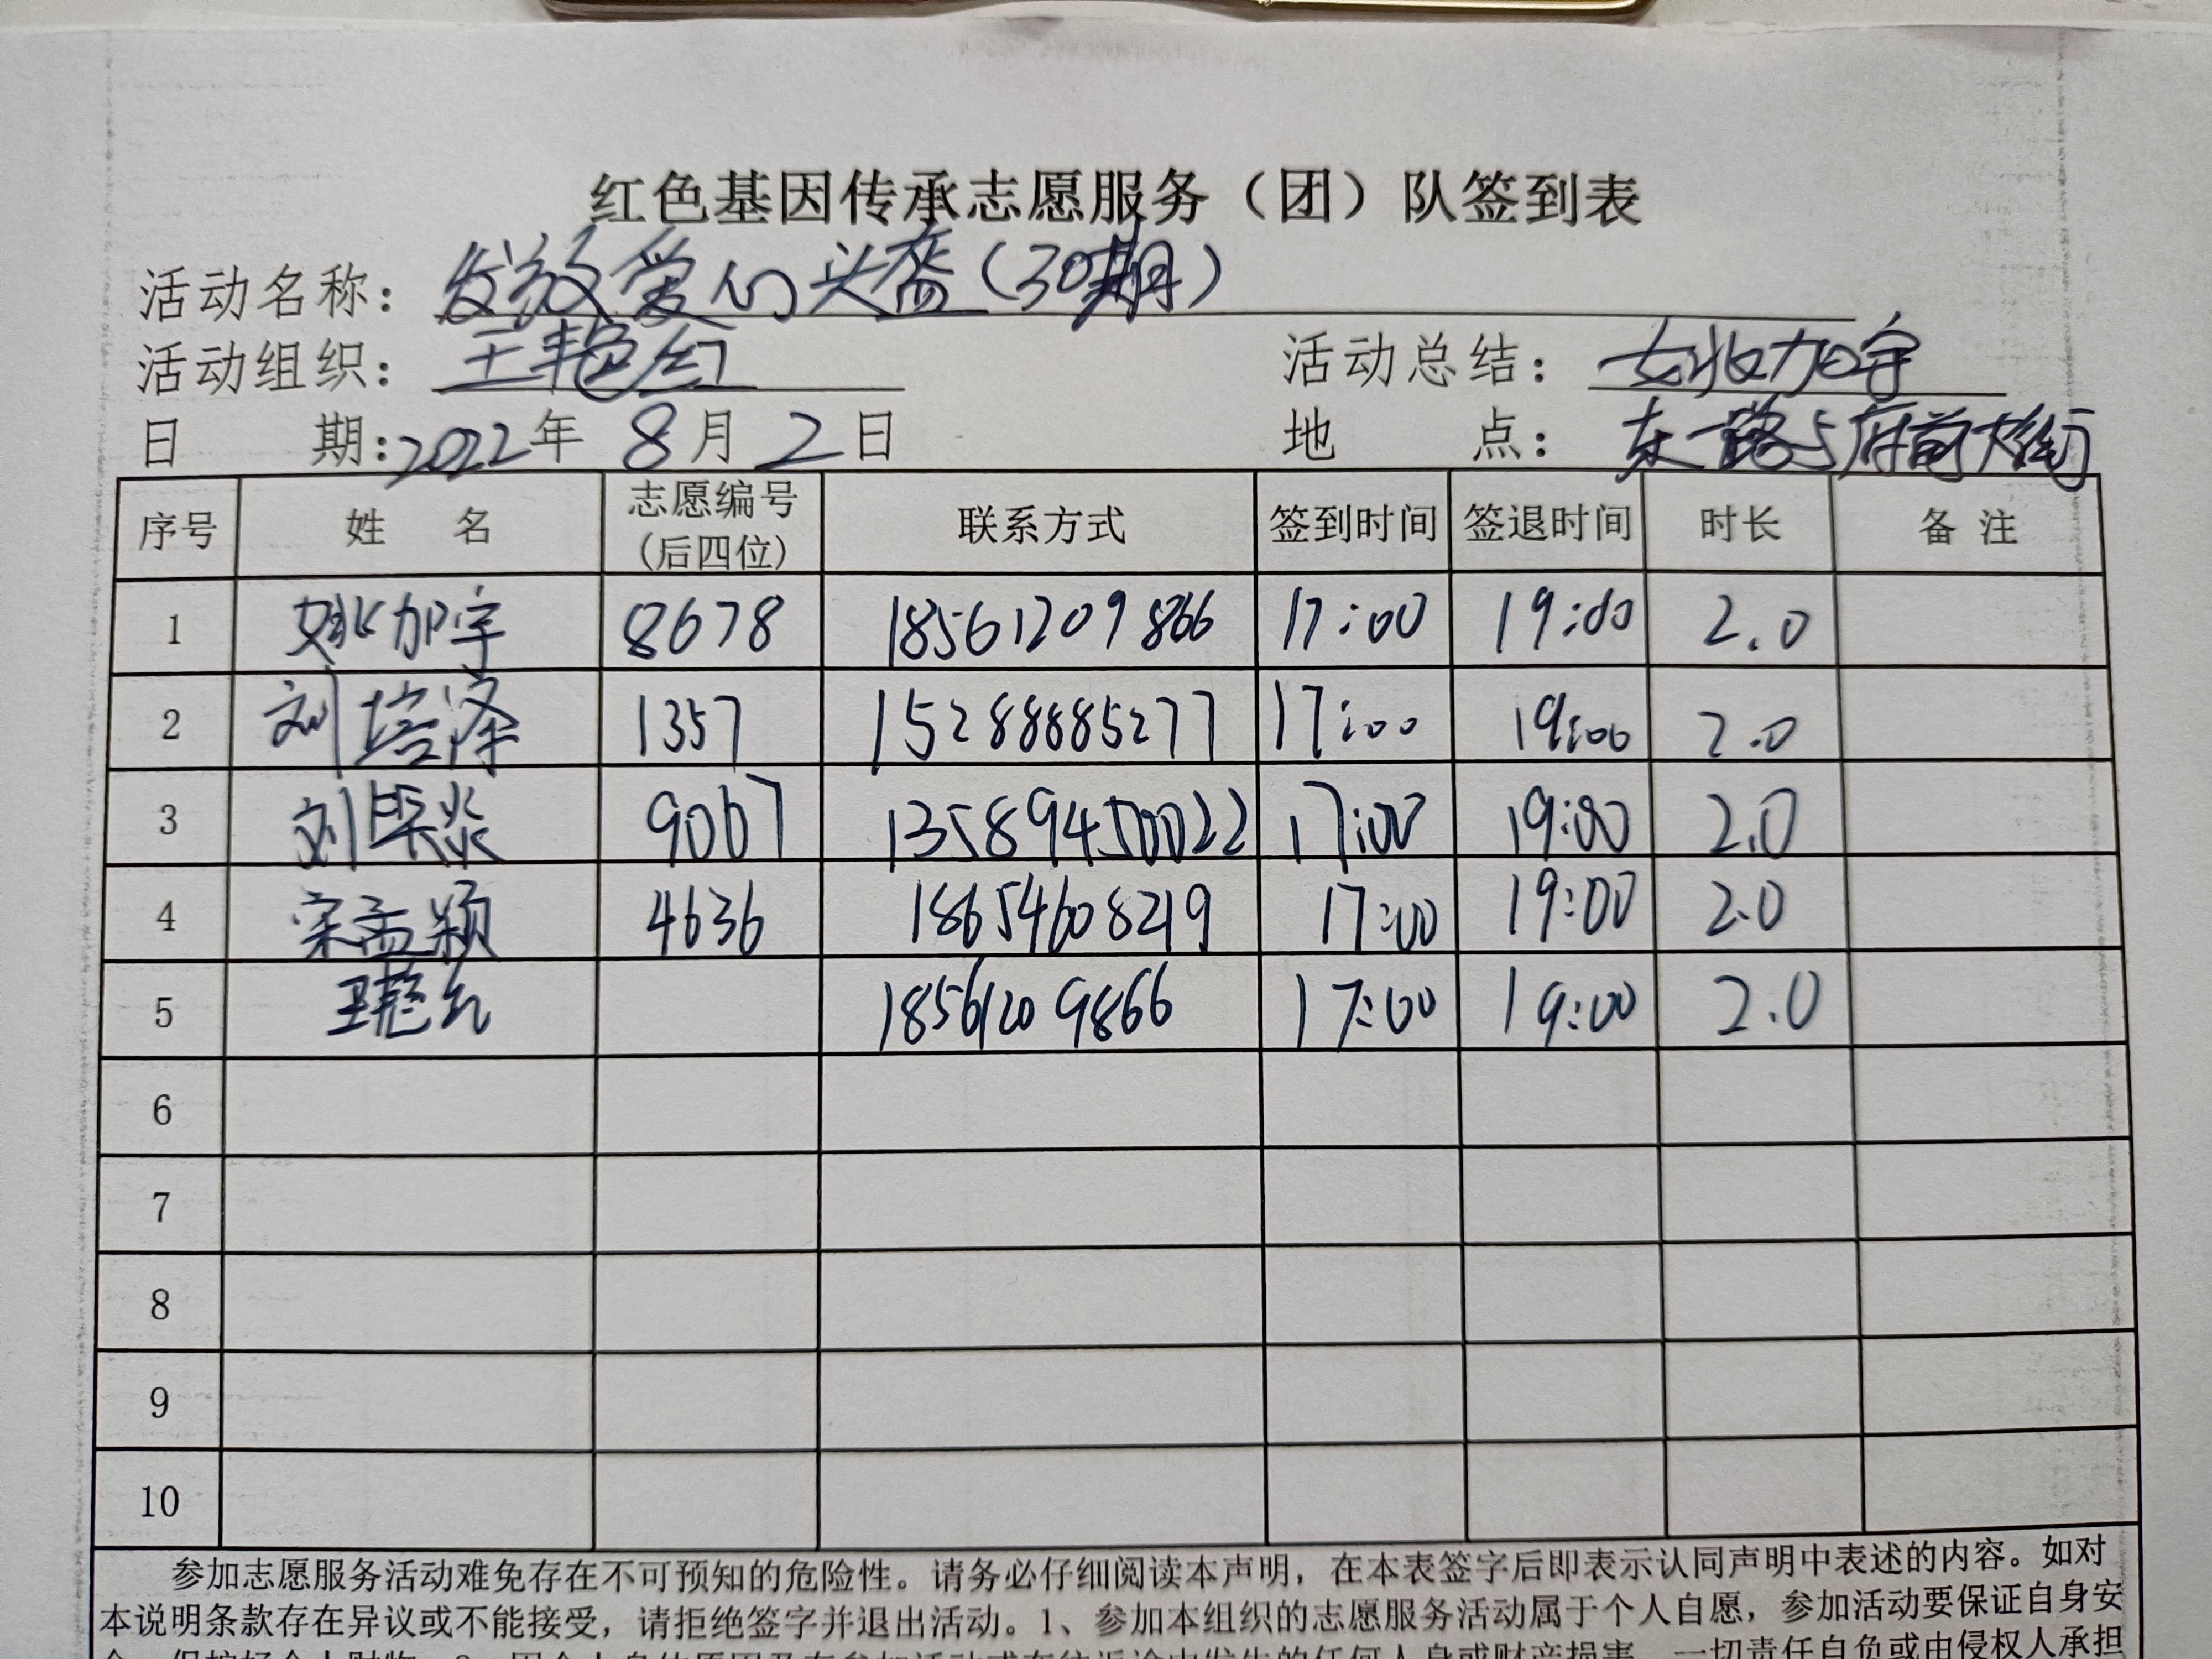 红色基因传承志愿服务（团）队签到表
活动名称：发放爱心头盔（30期）
活动组织：王艳红 活动总结：姚加宇
日 期：2022年 8月 2日 地 点：东一路与府前大街
序号 姓 名 志愿编号（后四位） 联系方式 签到时间 签退时间 时长 备 注
1 姚加宇 8678 18561209866 17:00 19:00 2.0
2 刘培泽 1357 15288885277 17:00 19:00 2.0
3 刘 9067 13589450022 17:00 19:00 2.0
4 宋孟颖 4636 18654608219 17:00 19:00 2.0
5 王艳红 18561209866 17:00 19:00 2.0
6
7
8
9
10
参加志愿服务活动难免存在不可预知的危险性。请务必仔细阅读本声明，在本表签字后即表示认同声明中表述的内容。如对
本说明条款存在异议或不能接受，请拒绝签字并退出活动。1、参加本组织的志愿服务活动属于个人自愿，参加活动要保证自身安
一切责任自负或由侵权人承担